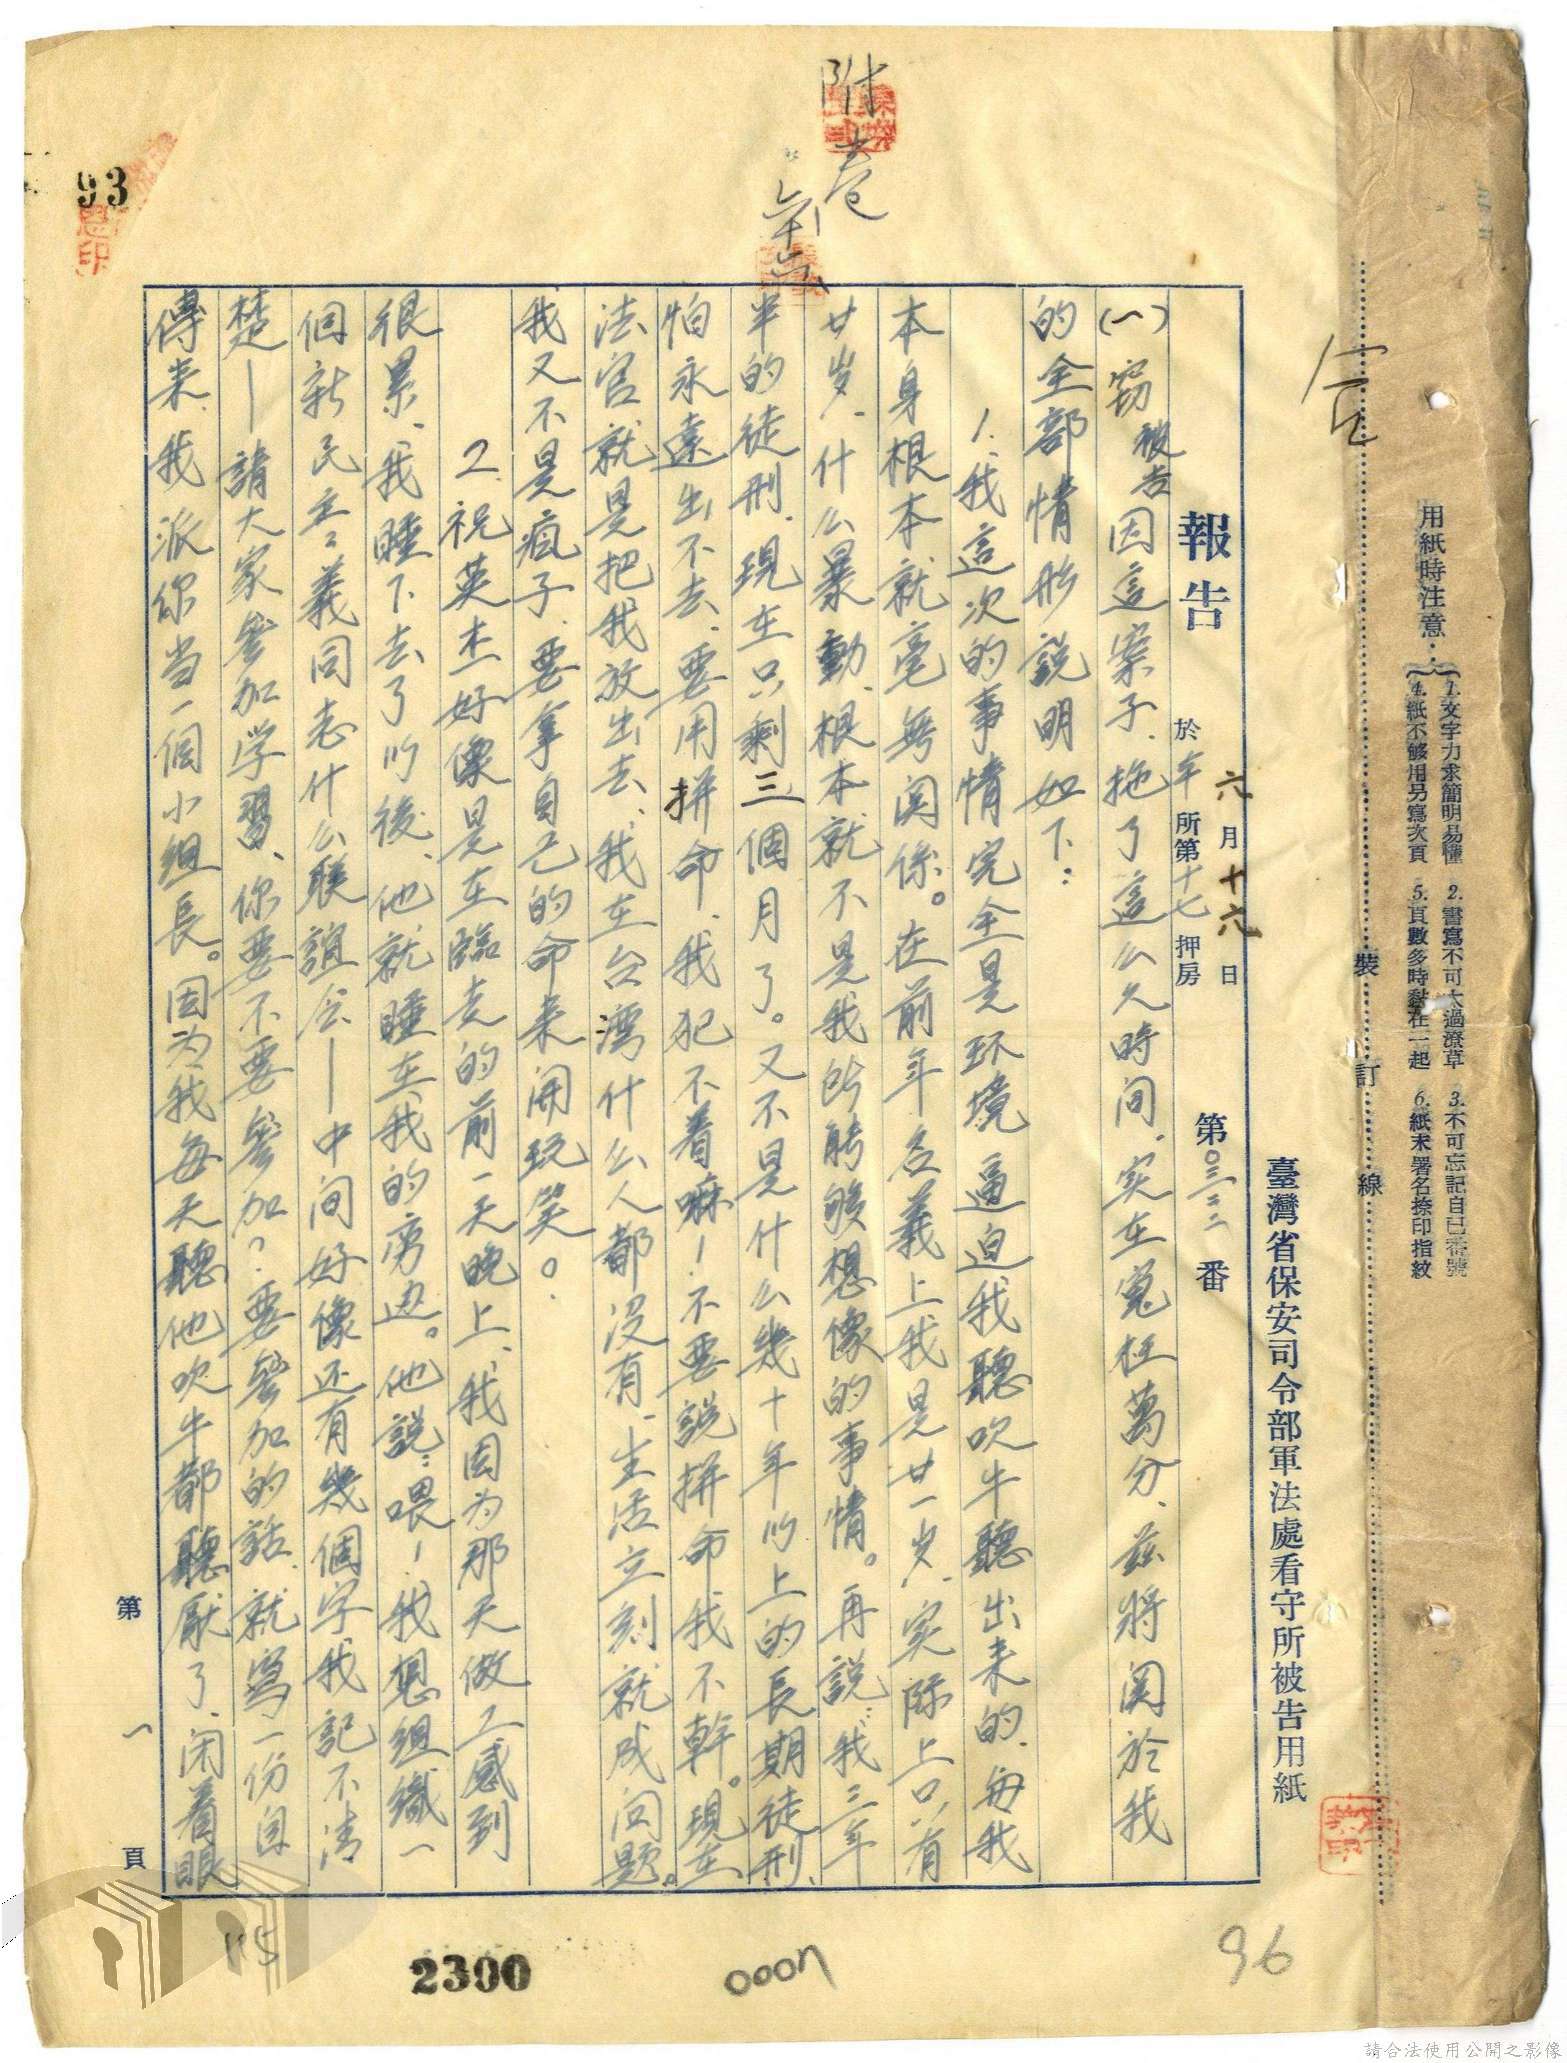 用紙時注意：
1.文字力求簡明易懂 2.書寫不可太過潦草 3.不可忘記自已番號
4.紙不够用另寫次頁 5.頁數多時黏在一起 6.紙末署名捺印指紋
裝 訂 線
臺灣省保安司令部軍法處看守所被告用紙
報告 於 年 六月十六日 所第十七押房 第〇三三二番
(一)竊被告因這案子，拖了這么久時间，实在寃枉萬分，茲將関於我
的全部情形説明如下：
1.我這次的事情完全是环境逼迫我聽吹牛聽出来的，每我
本身根本就毫無関係。在前年名義上我是廿一岁，实际上只有
廿岁，什么暴動，根本就不是我所能够想像的事情。再説：我三年
半的徒刑，現在只剩三個月了。又不是什么幾十年以上的長期徒刑，
怕永遠出不去，要用拼命，我犯不着嘛！不要説拼命我不幹。現在
法官就是把我放出去，我在台灣什么人都沒有，生活立刻就成问題。
我又不是瘋子，要拿自己的命来開玩笑。
2.祝英杰好像是在臨走的前一天晚上，我因为那天做工感到
很累，我睡下去了以後，他就睡在我的旁边。他説：喂！我想組織一
個新民主主義同志什么联誼会—中间好像还有幾個字我記不清
楚—請大家參加学習，你要不要參加？要參加的話，就寫一份自
傳来，我派你当一個小組長。因为我每天聽他吹牛都聽厭了，闭着眼
第 一 頁
附卷
93
115
2300
96
請合法使用公開之影像